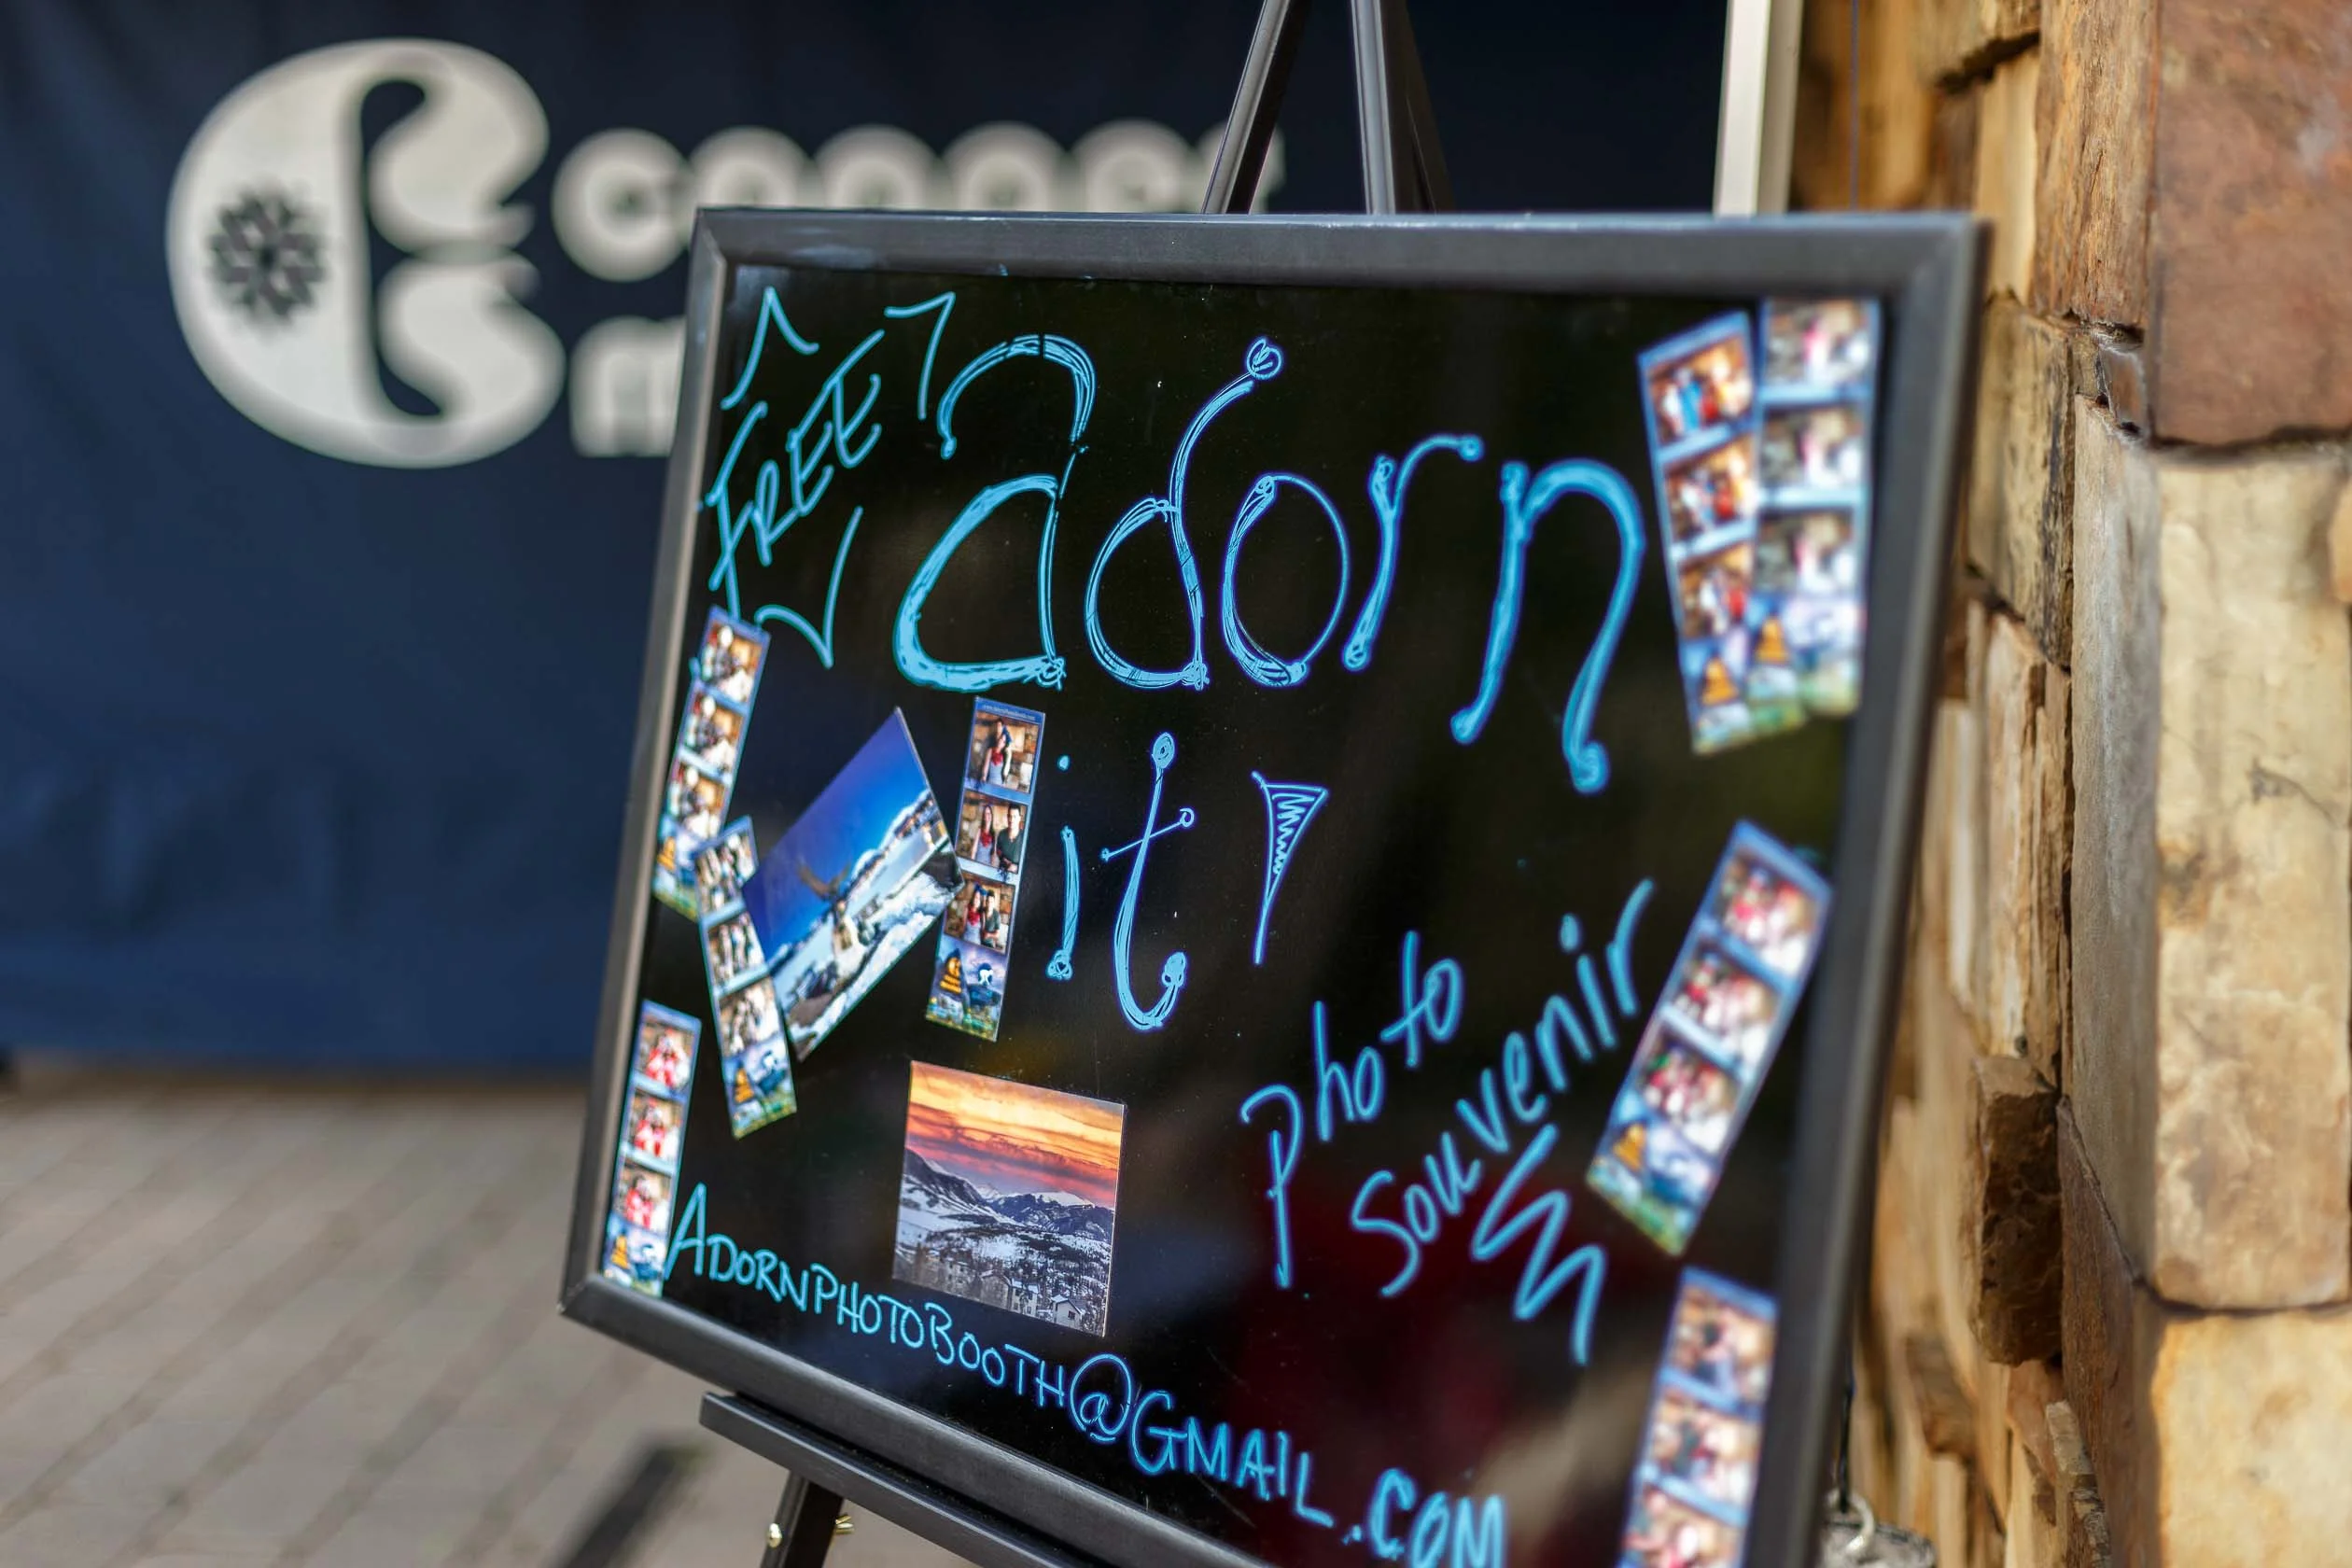 FREE
adorn
it!
Photo
Souvenir
ADORNPHOTOBOOTH@GMAIL.COM